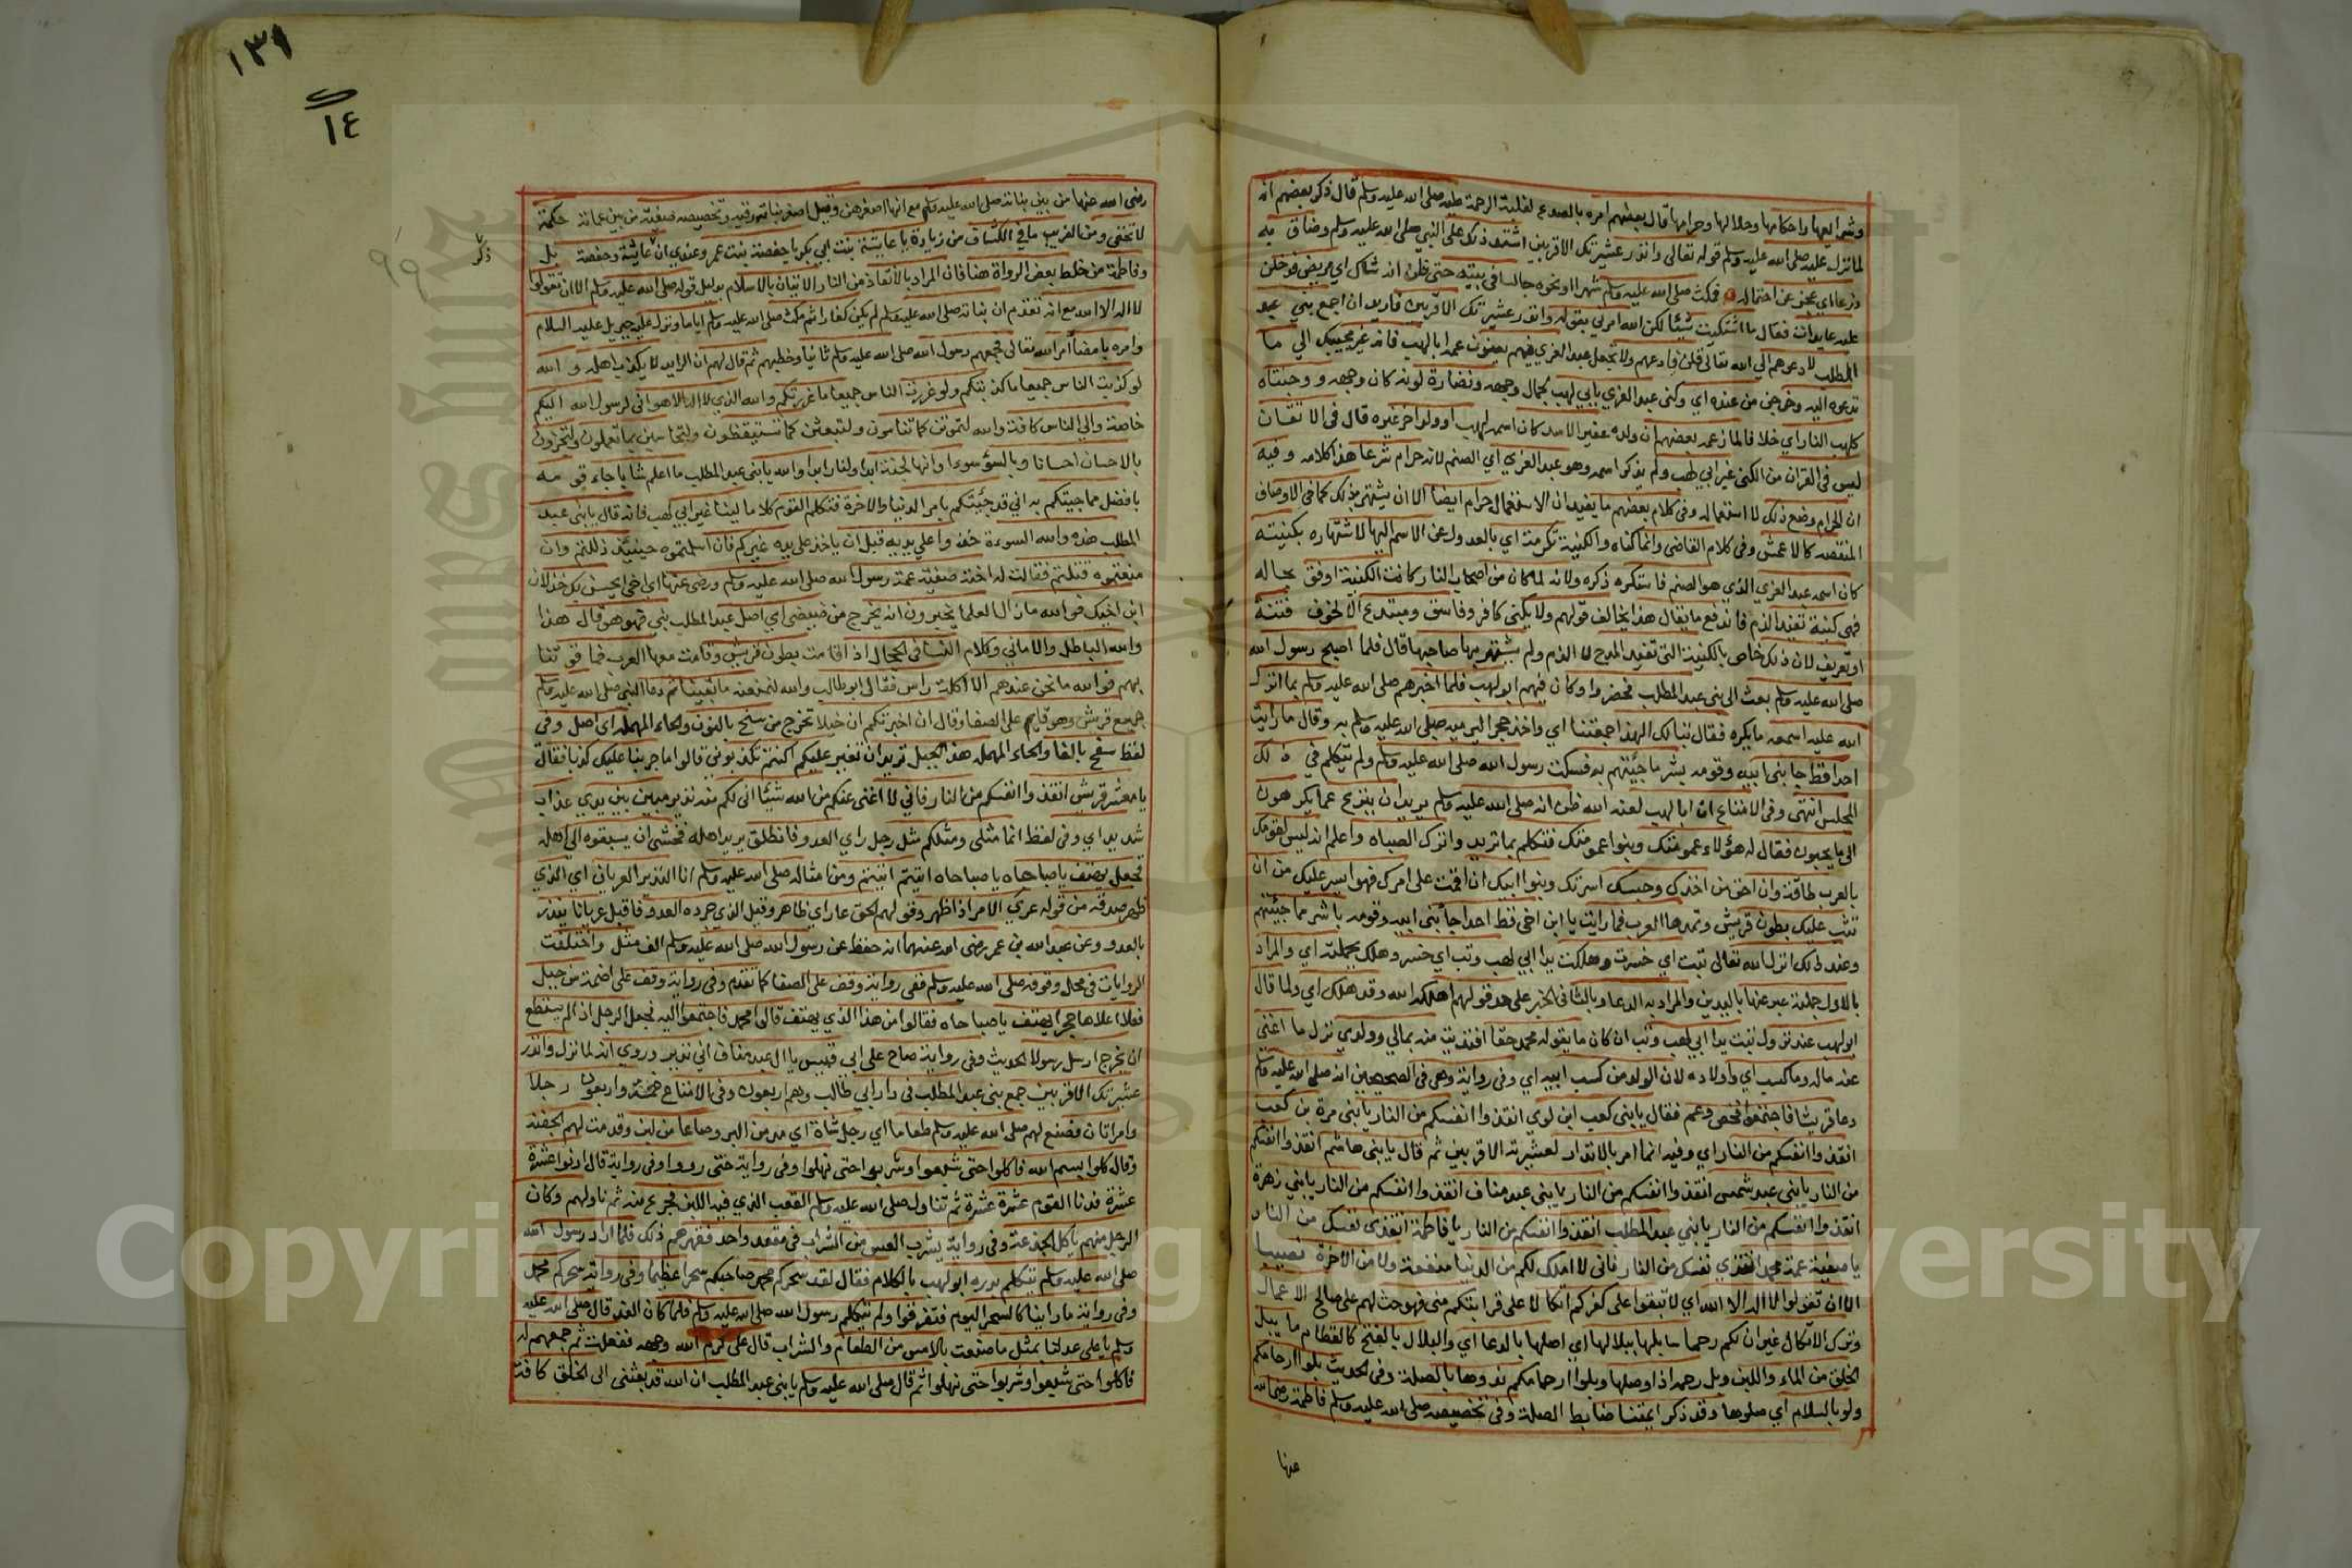 وشرايعها واحكامها وحلالها وحرامها قال بعضهم امره بالصدع لغلبة الرحمة عليه صلى الله عليه وسلم قال ذكر بعضهم انه
لما نزل عليه صلى الله عليه وسلم قوله تعالى وانذر عشيرتك الاقربين اشتد ذلك على النبي صلى الله عليه وسلم وضاق به
ذرعا اي عجز عن احتماله فمكث صلى الله عليه وسلم شهرا او نحوه جالسا في بيته حتى ظن انه شاك اي مريض فدخلن
عليه عايدات فقال ما اشتكيت شيئا لكن الله امرني بقوله وانذر عشيرتك الاقربين فاريد ان اجمع بني عبد
المطلب لادعوهم الي الله تعالى قلن فادعهم ولا تجعل عبد العزي فيهم يعنون عمه ابا لهب فانه غير مجيبك الي ما
تدعوه اليه وخرجن من عنده اي وكنى عبد العزي بابي لهب لجمال وجهه ونضارة لونه كان وجهه و وجنتاه
كلهب النار اي خلافا لما زعمه بعضهم ان ولده عقير الاسد كان اسمه لهب او ولد اخر غيره قال في الاتقان
ليس في القران من الكنى غير ابي لهب ولم يذكر اسمه وهو عبد العزي اي الصنم لانه حرام شرعا هذا كلامه وفيه
ان الحرام وضع ذلك لا استعماله وفي كلام بعضهم ما يفيد ان الاستعمال حرام ايضا الا ان يشتهر بذلك كما في الاوصاف
المنقصة كالاعمش وفي كلام القاضي وانما كناه والكنية تكرمة اي بالعدول عن الاسم اليها لاشتهاره بكنيته
كان اسمه عبد العزي الذي هو الصنم فاستكره ذكره ولانه لما كان من اصحاب النار كانت الكنية اوفق بحاله
فهي كنية تفيد الذم فاندفع ما يقال هذا يخالف قولهم ولا يكنى كافر وفاسق ومبتدع الا لخوف فتنة
او تعريف لان ذلك خاص بالكنية التي تفيد المدح لا الذم ولم يشتهر بها صاحبها قال فلما اصبح رسول الله
صلى الله عليه وسلم بعث الى بني عبد المطلب فحضروا وكان فيهم ابو لهب فلما اخبرهم صلى الله عليه وسلم بما انزل
الله عليه اسمعه ما يكره فقال تبا لك الهذا جمعتنا اي واخذ حجرا ليرميه صلى الله عليه وسلم به وقال ما رايت
احدا قط جا بني ابيه وقومه بشر ما جئتهم به فسكت رسول الله صلى الله عليه وسلم ولم يتكلم في ذلك
المجلس انتهى وفي الامتاع ان ابا لهب لعنه الله ظن انه صلى الله عليه وسلم يريد ان ينزع عما يكرهون
الى ما يحبون فقال له هؤلاء عمومتك وبنوا عمومتك فتكلم بما تريد واترك الصباه واعلم انه ليس لقومك
بالعرب طاقة وان احق من اخذك وحبسك اسرتك وبنوا ابيك ان اقمت على امرك فهو ايسر عليك من ان
تثب عليك بطون قريش وتمدها العرب فما رايت يا ابن اخي قط احدا جا بني ابيه وقومه باشر مما جئتهم
وعند ذلك انزل الله تعالى تبت اي خسرت وهلكت يدا ابي لهب وتب اي خسر وهلك بجملته اي والمراد
بالاول جملته عبر عنها باليدين والمراد به الدعاء وبالثاني الخبر على حد قولهم اهلكه الله وقد هلك اي ولما قال
ابو لهب عند نزول تبت يدا ابي لهب وتب ان كان ما يقوله محمد حقا افتديت منه بمالي وولدي نزل ما اغنى
عنه ماله وما كسب اي واولاده لان الولد من كسب ابيه اي وفي رواية وهي في الصحيحين انه صلى الله عليه وسلم
دعا قريشا فاجتمعوا فخص وعم فقال يا بني كعب ابن لوي انقذوا انفسكم من النار يا بني مرة بن كعب
انقذوا انفسكم من النار اي وفيه انما امر بالانذار لعشيرته الاقربين ثم قال يا بني هاشم انقذوا انفسكم
من النار يا بني عبد شمس انقذوا انفسكم من النار يا بني عبد مناف انقذوا انفسكم من النار يا بني زهرة
انقذوا انفسكم من النار يا بني عبد المطلب انقذوا انفسكم من النار يا فاطمة انقذي نفسك من النار
يا صفية عمة محمد انقذي نفسك من النار فاني لا املك لكم من الدنيا منفعة ولا من الاخرة نصيبا
الا ان تقولوا لا اله الا الله اي لا تبقوا على كفركم اتكالا على قرابتكم مني فهو حث لهم على صالح الاعمال
وترك الاتكال غير ان لكم رحما سابلها ببلالها اي اصلها بالدعا اي والبلال بالفتح كالقطام ما يبل
الحلق من الماء واللبن وبل رحمه اذا وصلها وبلوا ارحامكم ندوها بالصلة وفي الحديث بلوا ارحامكم
ولو بالسلام اي صلوها وقد ذكر ايمتنا ضابط الصلة وفي تخصيصه صلى الله عليه وسلم فاطمة رضي الله
عنها
١٣٩
١٤
٩٩
رضى الله عنها من بين بناته صلى الله عليه وسلم مع انها اصغرهن وقيل اصغر بناته رقية وتخصيصه صفية من بين عماته حكمة
لا تخفى ومن الغريب ما في الكشاف من زيادة يا عايشة بنت ابي بكر يا حفصة بنت عمر وعندي ان عايشة وحفصة بل
ذكر
وفاطمة من خلط بعض الرواة هنا فان المراد بالانقاذ من النار الاتيان بالاسلام بدليل قوله صلى الله عليه وسلم الا ان تقولوا
لا اله الا الله مع انه تقدم ان بناته صلى الله عليه وسلم لم يكن كفارا ثم مكث صلى الله عليه وسلم اياما ونزل عليه جبريل عليه السلام
وامره بامضا امر الله تعالى فجمعهم رسول الله صلى الله عليه وسلم ثانيا وخطبهم ثم قال لهم ان الرايد لا يكذب اهله و الله
لو كذبت الناس جميعا ما كذبتكم ولو غررت الناس جميعا ما غررتكم والله الذي لا اله الا هو اني لرسول الله اليكم
خاصة والي الناس كافة والله لتموتن كما تنامون ولتبعثن كما تستيقظون ولتحاسبن بما تعملون ولتجزون
بالاحسان احسانا وبالسؤ سوءا وانها لجنة ابدا ولنار ابدا والله يا بني عبد المطلب ما اعلم شابا جاء قومه
بافضل مما جيتكم به اني قد جئتكم بامر الدنيا والاخرة فتكلم القوم كلاما لينا غير ابي لهب فانه قال يا بني عبد
المطلب هذه والله السوءة خذوا على يديه قبل ان ياخذ على يديه غيركم فان اسلمتموه حينئذ ذللتم وان
منعتموه قتلتم فقالت له اخته صفية عمة رسول الله صلى الله عليه وسلم ورضى عنها اي اخي ايحسن بك خذلان
ابن اخيك فوالله ما زال العلما يخبرون انه يخرج من ضيضي اي اصل عبد المطلب نبي فهو هو قال هذا
والله الباطل والاماني وكلام النسا في الحجال اذا قامت بطون قريش وقامت معها العرب فما قوتنا
بهم فوالله ما نحن عندهم الا اكلة راس فقال ابو طالب والله لنمنعنه ما بقينا ثم دعا النبي صلى الله عليه وسلم
جميع قريش وهو قايم على الصفا وقال ان اخبرتكم ان خيلا تخرج من سنح بالنون والحاء المهملة اي اصل وفي
لفظ سفح بالفا والحاء المهملة هذا الجبل تريد ان تغير عليكم اكنتم تكذبوني قالوا ما جربنا عليك كذبا فقال
يا معشر قريش انقذوا انفسكم من النار فاني لا اغنى عنكم من الله شيئا اني لكم منه نذير مبين بين يدي عذاب
شديد اي وفي لفظ انما مثلى ومثلكم مثل رجل راي العدو فانطلق يريد اهله فخشى ان يسبقوه الى اهله
فجعل يهتف يا صباحاه يا صباحاه اتيتم اتيتم ومن امثاله صلى الله عليه وسلم انا النذير العريان اي الذي
ظهر صدقه من قوله عري الامر اذا ظهر وقولهم الحق عار اي ظاهر وقيل الذي جرده العدو فاقبل عريانا ينذر
بالعدو وعن عبد الله بن عمر رضى الله عنهما انه حفظ عن رسول الله صلى الله عليه وسلم الف مثل واختلفت
الروايات في محل وقوفه صلى الله عليه وسلم ففى رواية وقف على الصفا كما تقدم وفي رواية وقف على اضمة من جبل
فعلا اعلاها حجرا يهتف يا صباحاه فقالوا من هذا الذي يهتف قالوا محمد فاجتمعوا اليه فجعل الرجل اذا لم يستطع
ان يخرج ارسل رسولا الحديث وفي رواية صاح على ابي قبيس يا ال عبد مناف اني نذير وروي انه لما نزل وانذر
عشيرتك الاقربين جمع بني عبد المطلب في دار ابي طالب وهم اربعون وفي الامتاع خمسة واربعون رجلا
وامراتان فصنع لهم صلى الله عليه وسلم طعاما اي رجل شاة اي مد من البر وصاعا من لبن وقدمت لهم الجفنة
وقال كلوا بسم الله فاكلوا حتى شبعوا وشربوا حتى نهلوا وفي رواية حتى رووا وفي رواية قال ادنوا عشرة
عشرة فدنا القوم عشرة عشرة ثم تناول صلى الله عليه وسلم القعب الذي فيه اللبن فجرع منه ثم ناولهم وكان
الرجل منهم ياكل الجذعة وفي رواية يشرب العس من الشراب في مقعد واحد فقهرهم ذلك فلما اراد رسول الله
صلى الله عليه وسلم يتكلم بدره ابو لهب بالكلام فقال لقد سحركم محمد صاحبكم سحرا عظيما وفي رواية سحركم محمد
وفي رواية ما راينا كالسحر اليوم فتفرقوا ولم يتكلم رسول الله صلى الله عليه وسلم فلما كان الغد قال صلى الله عليه
وسلم يا على عد لنا بمثل ما صنعت بالامس من الطعام والشراب قال على كرم الله وجهه ففعلت ثم جمعهم له
فاكلوا حتى شبعوا وشربوا حتى نهلوا ثم قال صلى الله عليه وسلم يا بني عبد المطلب ان الله قد بعثنى الى الخلق كافة